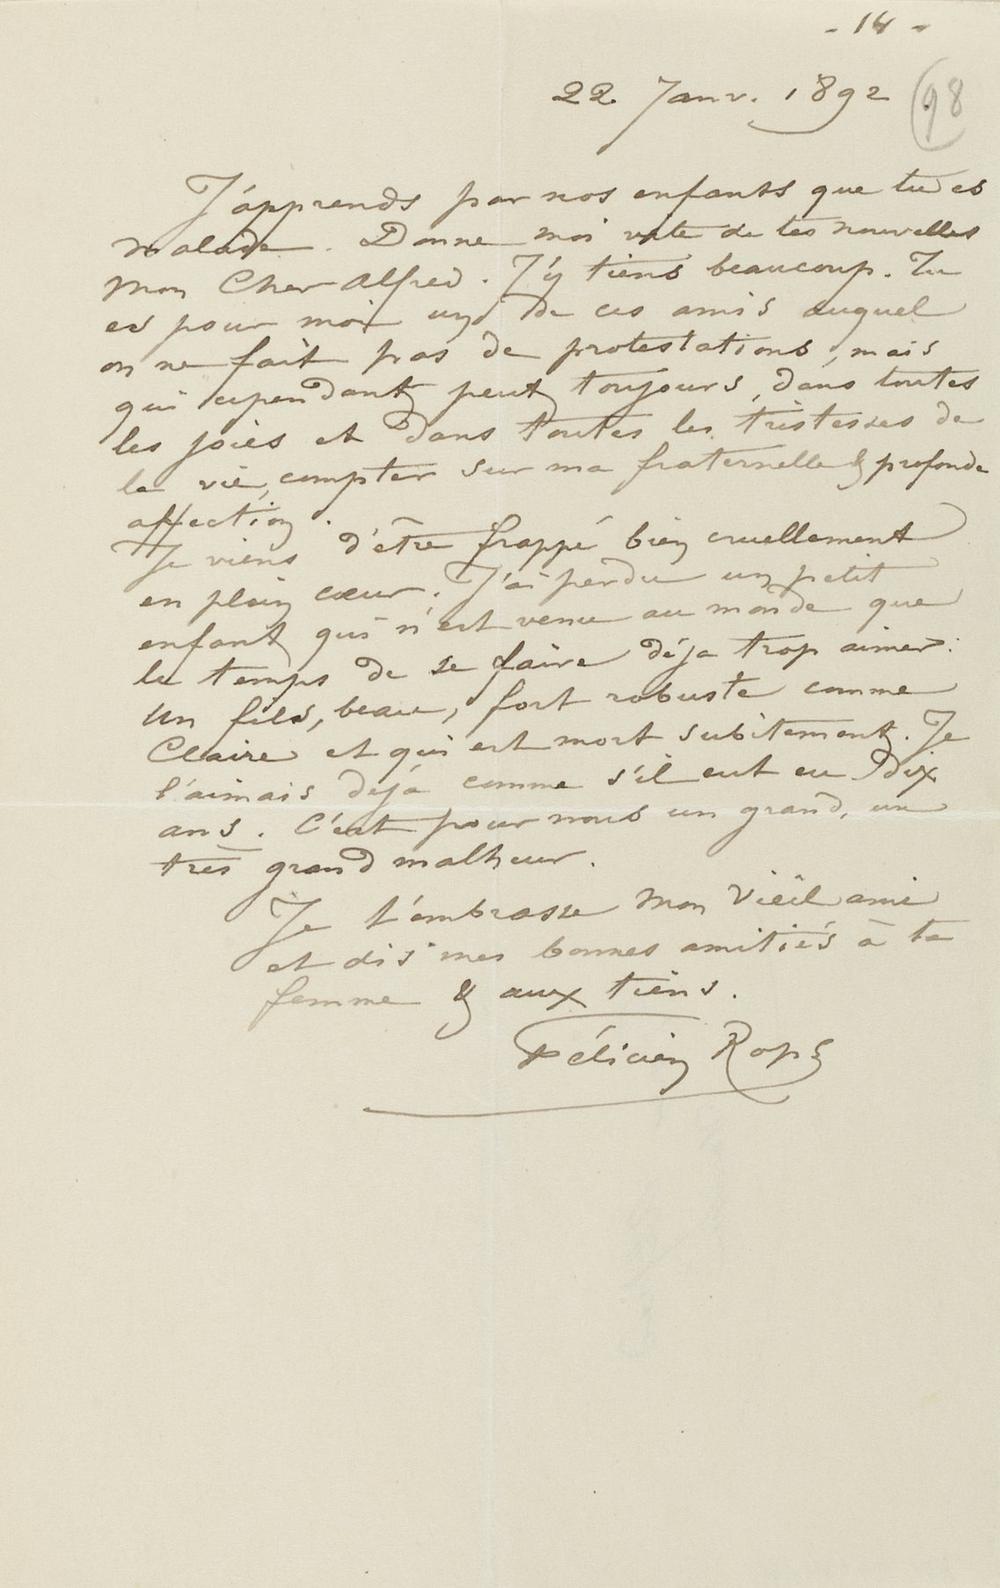 - 14 -
22 Janv. 1892
98
J'apprends par nos enfants que tu es
malade. Donne moi vite de tes nouvelles
Mon Cher Alfred. J'y tiens beaucoup. Tu
es pour moi un de ces amis auquel
on ne fait pas de protestations, mais
qui cependant peut toujours, dans toutes
les joies et dans toutes les tristesses de
la vie, compter sur ma fraternelle & profonde
affection.
Je viens d'être frappé bien cruellement
en plein cœur. J'ai perdu un petit
enfant qui n'est venu au monde que
le temps de se faire déja trop aimer:
Un fils, beau, fort robuste comme
Claire et qui est mort subitement. Je
l'aimais déjà comme s'il eut eu dix
ans. C'est pour nous un grand, un
très grand malheur.
Je t'embrasse mon Vieil ami
et dis mes bonnes amitiés à ta
femme & aux tiens.
Félicien Rops